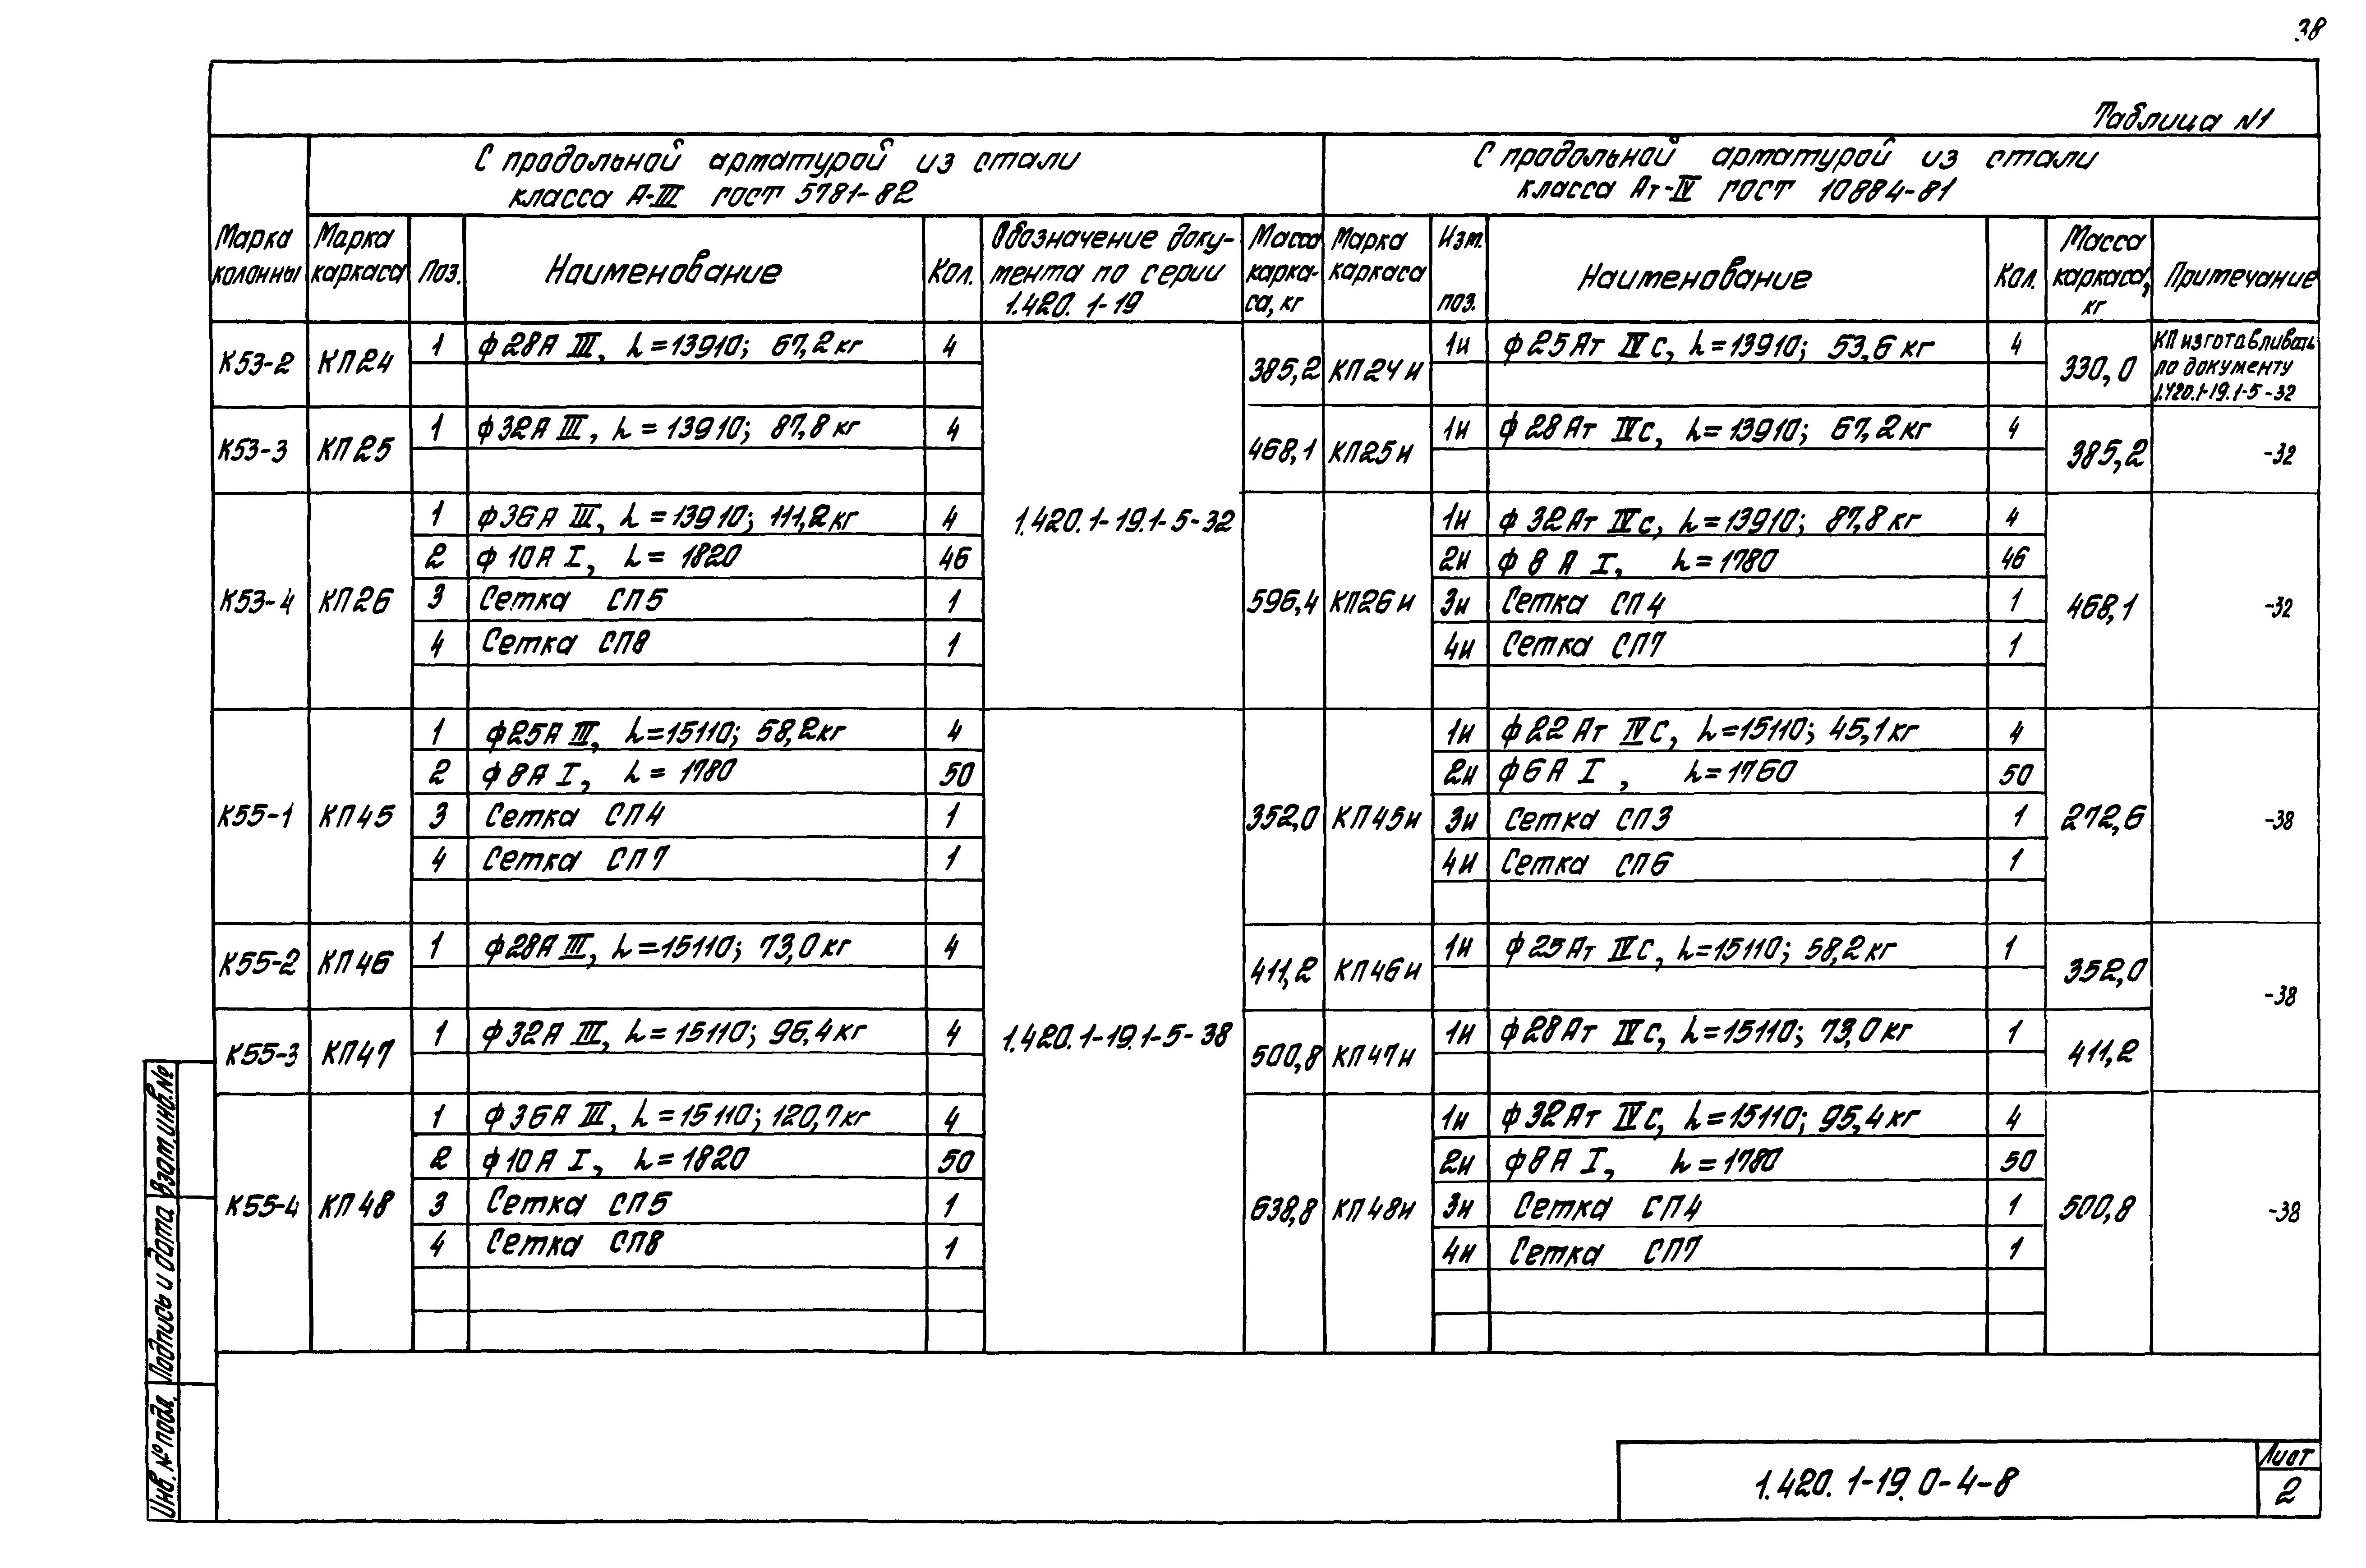 38
Таблица N1
С продольной арматурой из стали
класса А-III ГОСТ 5781-82
С продольной арматурой из стали
класса Ат-IV ГОСТ 10884-81
Марка колонны
Марка каркаса
Поз.
Наименование
Кол.
Обозначение доку-
мента по серии
1.420.1-19
Масса карка-
са, кг
Марка каркаса
Изм. поз.
Наименование
Кол.
Масса каркаса, кг
Примечание
К53-2 КП24 1 ф28А III, L=13910; 67,2кг 4 385,2 КП24и 1и ф25Ат IVС, L=13910; 53,6кг 4 330,0
КП изготавливать
по документу
1.420.1-19.1-5-32
К53-3 КП25 1 ф32А III, L=13910; 87,8кг 4 468,1 КП25и 1и ф28Ат IVс, L=13910; 67,2кг 4 385,2 -32
1.420.1-19.1-5-32
К53-4 КП26 596,4 КП26и 468,1 -32
1 ф36А III, L=13910; 111,2кг 4 1и ф32Ат IVс, L=13910; 87,8кг 4
2 ф10А I, L=1820 46 2и ф8А I, L=1780 46
3 Сетка СП5 1 3и Сетка СП4 1
4 Сетка СП8 1 4и Сетка СП7 1
К55-1 КП45 352,0 КП45и 272,6 -38
1 ф25А III, L=15110; 58,2кг 4 1и ф22Ат IVС, L=15110; 45,1кг 4
2 ф8А I, L=1780 50 2и ф6А I, L=1760 50
3 Сетка СП4 1 3и Сетка СП3 1
4 Сетка СП7 1 4и Сетка СП6 1
К55-2 КП46 1 ф28А III, L=15110; 73,0кг 4 411,2 КП46и 1и ф25Ат IVС, L=15110; 58,2кг 1 352,0 -38
К55-3 КП47 1 ф32А III, L=15110; 96,4кг 4 1.420.1-19.1-5-38 500,8 КП47и 1и ф28Ат IVС, L=15110; 73,0кг 1 411,2
К55-4 КП48 638,8 КП48и 500,8 -38
1 ф36А III, L=15110; 120,7кг 4 1и ф32Ат IVС, L=15110; 95,4кг 4
2 ф10А I, L=1820 50 2и ф8А I, L=1780 50
3 Сетка СП5 1 3и Сетка СП4 1
4 Сетка СП8 1 4и Сетка СП7 1
Взам.инв.№
Подпись и дата
Инв.№ подл.
1.420.1-19.0-4-8
Лист
2